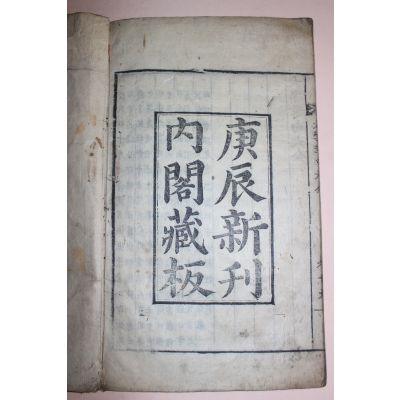 庚辰新刊
内閣藏板